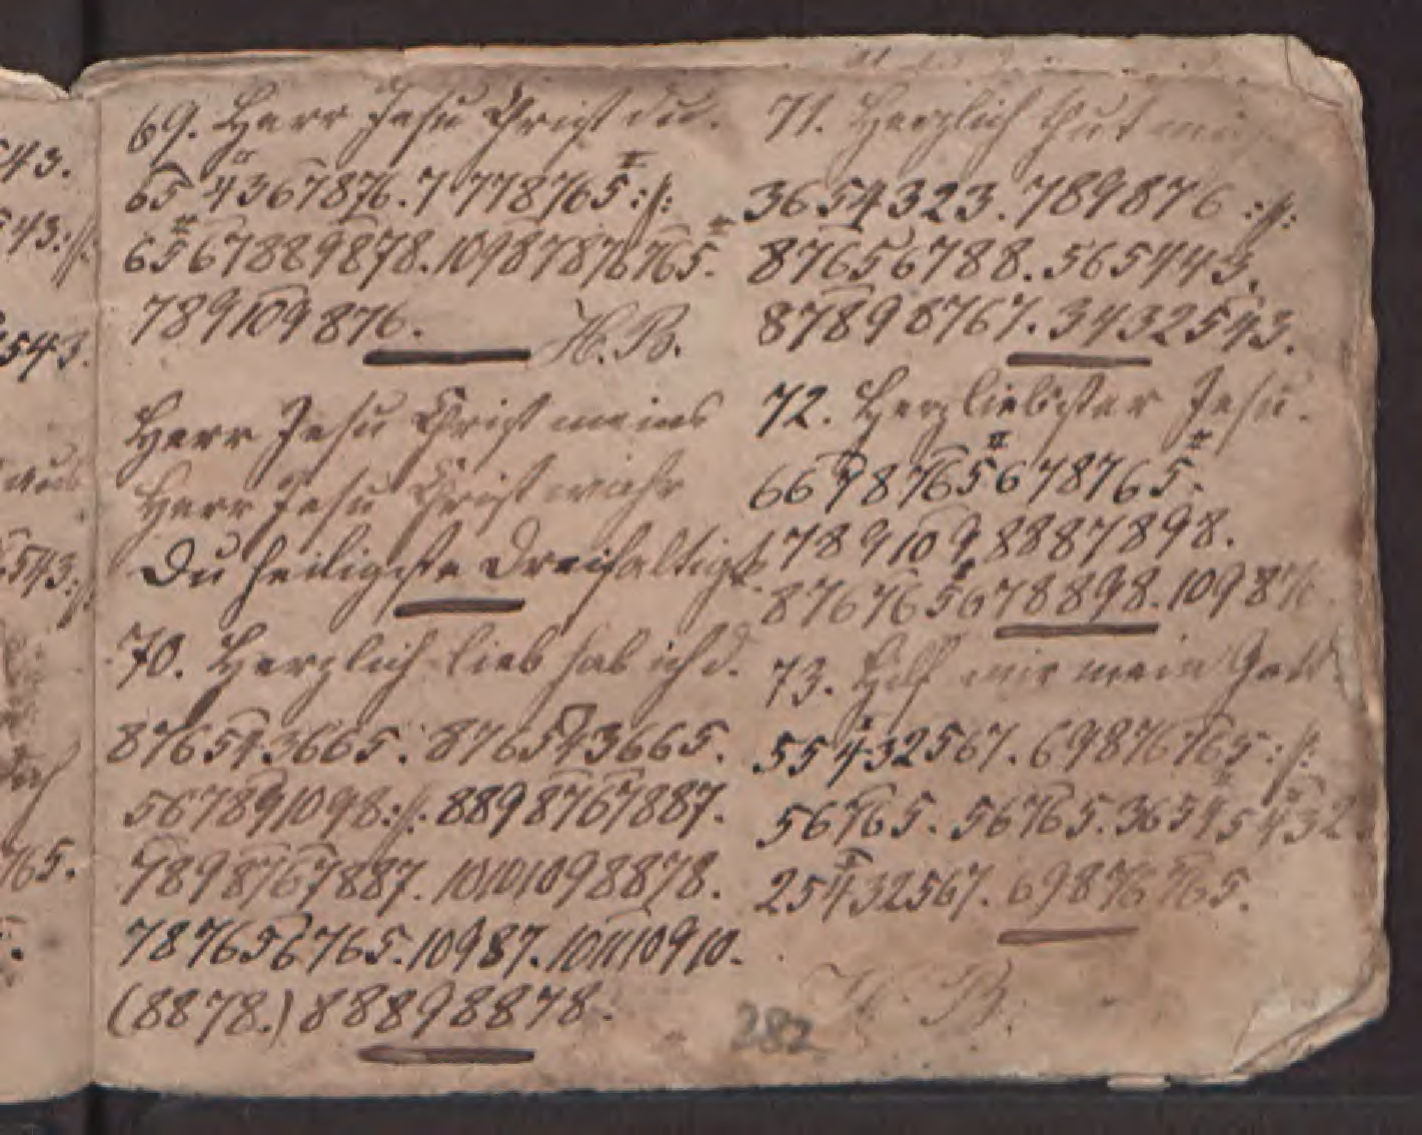 69. Herr Jesu Christ du.
65 4367876.7 778765:||:
656788 9878.10987876765.
789109876.
H. B.
Herr Jesu Christ meins
Herr Jesu Christ wahr
Du heiligste Dreifaltigk.
70. Herzlich lieb hab ich d.
876543665. 876543665.
567891098:||: 8898767887.
7898767887. 10101098878.
7876656765.10987.101110910.
(8878.) 88898878.
71. Herzlich thut mich
3654323.789876:||:
87656788.565443.
87898767.3432543.
72. Herzliebster Jesu.
66787656 78765.
789109 8887898.
8767656 78898. 109876
73. Hilf mir mein Gott.
55432567. 69876765:||:
56765. 56765.3654 5432.
25432567. 69876765.
H. B.
282